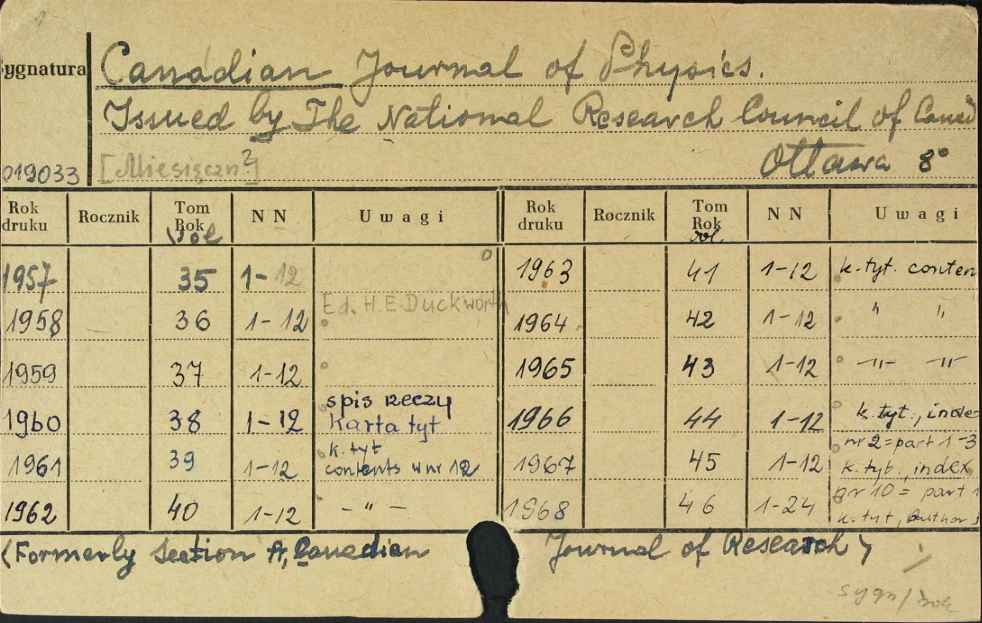 ygnatura Canadian Journal of Physics.
Issued by The National Research Council of Canad
019033 [Miesięczn?] Ottawa 8°
Rok druku Rocznik Tom Rok vol N N Uwagi Rok druku Rocznik Tom Rok vol. N N Uwagi
1957 35 1-12 1963 41 1-12 k.tyt. conten
Ed. H.E. Duckworth
1958 36 1-12 1964 42 1-12 " "
1959 37 1-12 1965 43 1-12 -"- -"-
1960 38 1-12 spis rzeczy Karta tyt 1966 44 1-12 k.tyt., index
nr 2=part 1-3
1961 39 1-12 k.tyt contents w nr 12 1967 45 1-12 k.tyt., index
1962 40 1-12 -"- 1968 46 1-24 nr 10= part 1 k.tyt, author
(Formerly Section A, Canadian Journal of Research)
sygn/rok